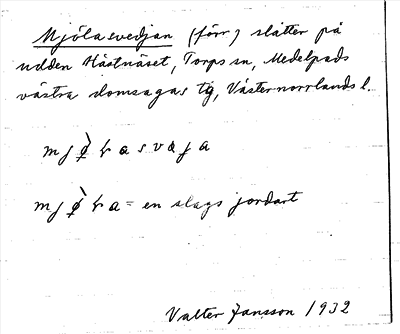 Mjölasvedjan (förr) slåtter på
udden Hästnäset, Torps sn, Medelpads
västra domsagas tg, Västernorrlands l.
mjø̀ɫasvaja
mjø̀ɫa = en slags jordart
Valter Jansson 1932